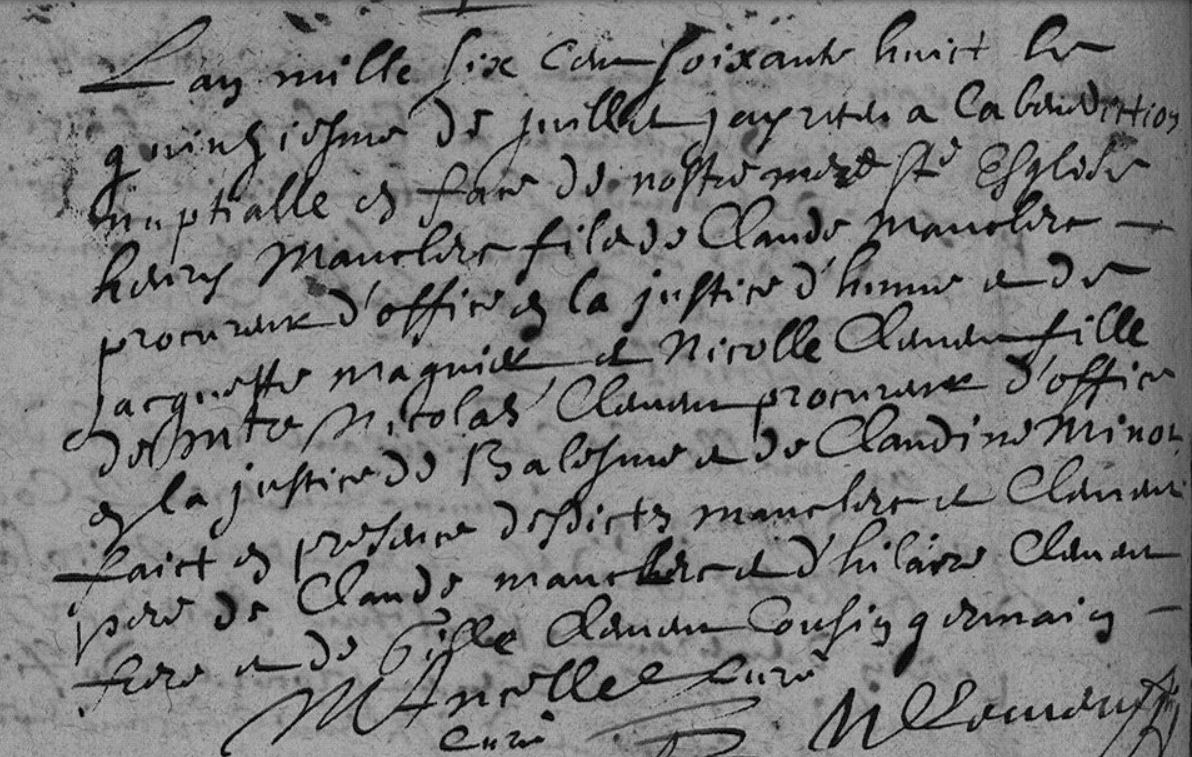 Lan mille six cens soixante huict le
quinziesme de juillet jay receu a la benediction
nuptialle en face de nostre mere ste Esglise
henry Mauclerc fils de Claude Mauclerc
procureur d'office en la justice d'humes et de
Jacquette magniet et Nicolle Clement fille
de Nicolas Clement procureur d'office
en la justice de Balesme et de Claudine Minot
faict en presence desdicts mauclerc et Clement
pere de Claude mauclerc et d'hilaire Clement
frere et de Gille Clement Cousin germain
M Ancelle Curé
Curé
N Clement